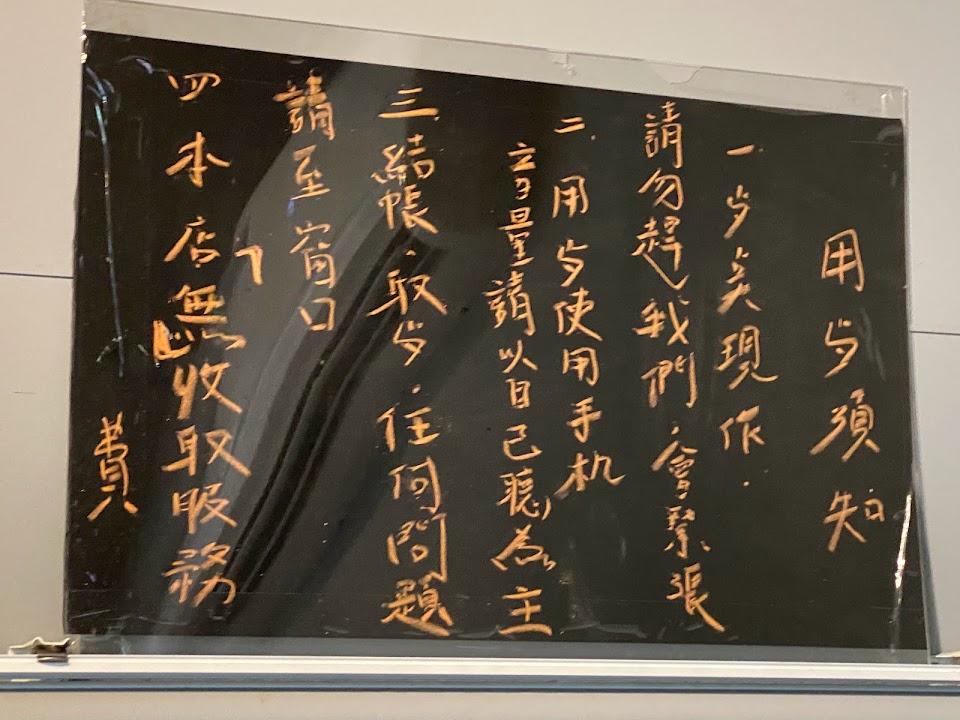 用歺須知
一.歺奌現作.
請勿趕我們.會緊張
二.用歺使用手机
音量請以自己聽為主
三.結帳.取歺.任何問題
請至窗口
四本店「無」收取服務
費